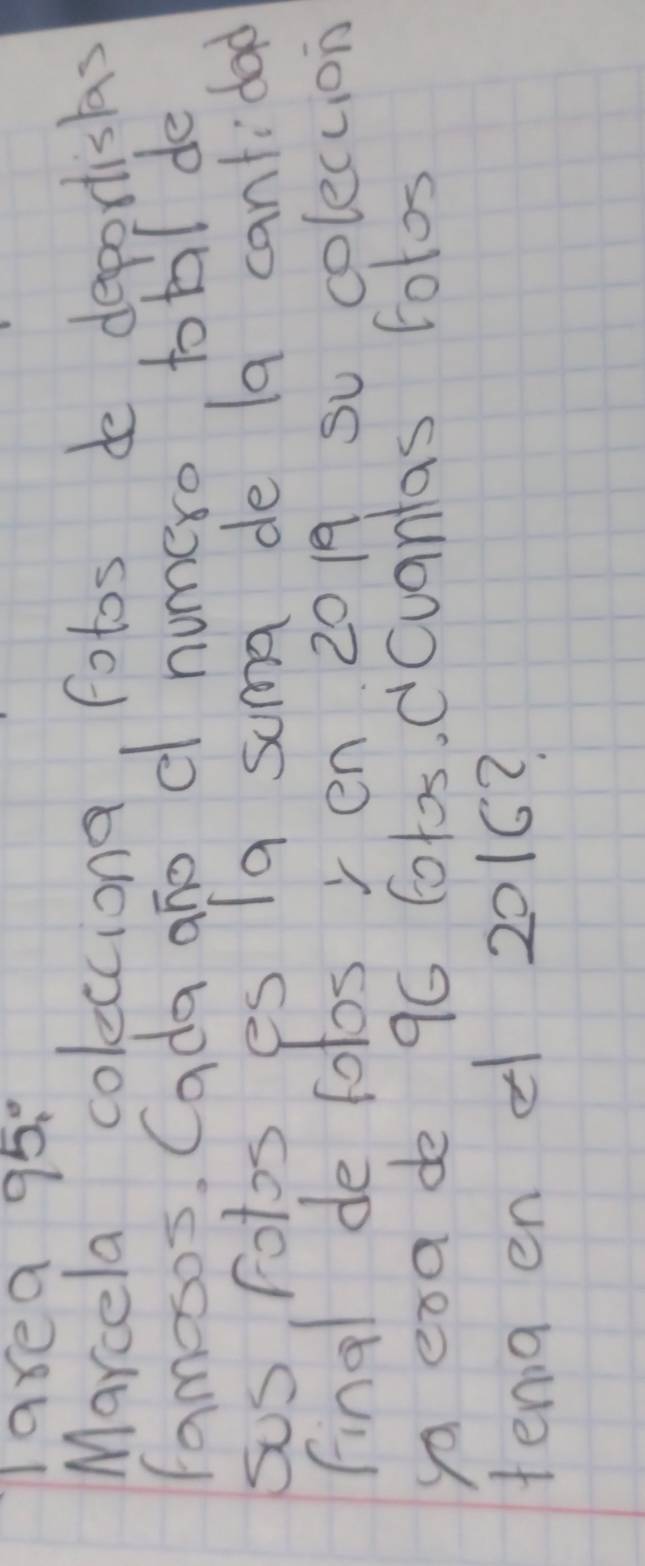 Tarea 95:
Marcela colecciona fotos de deportistas
famosos. Cada año el numero total de
sus fotos es la suma de la cantidad
final de fotos y en 2019 su colección
ya era de 96 fotos. ¿Cuantas fotos
tenia en el 2016?